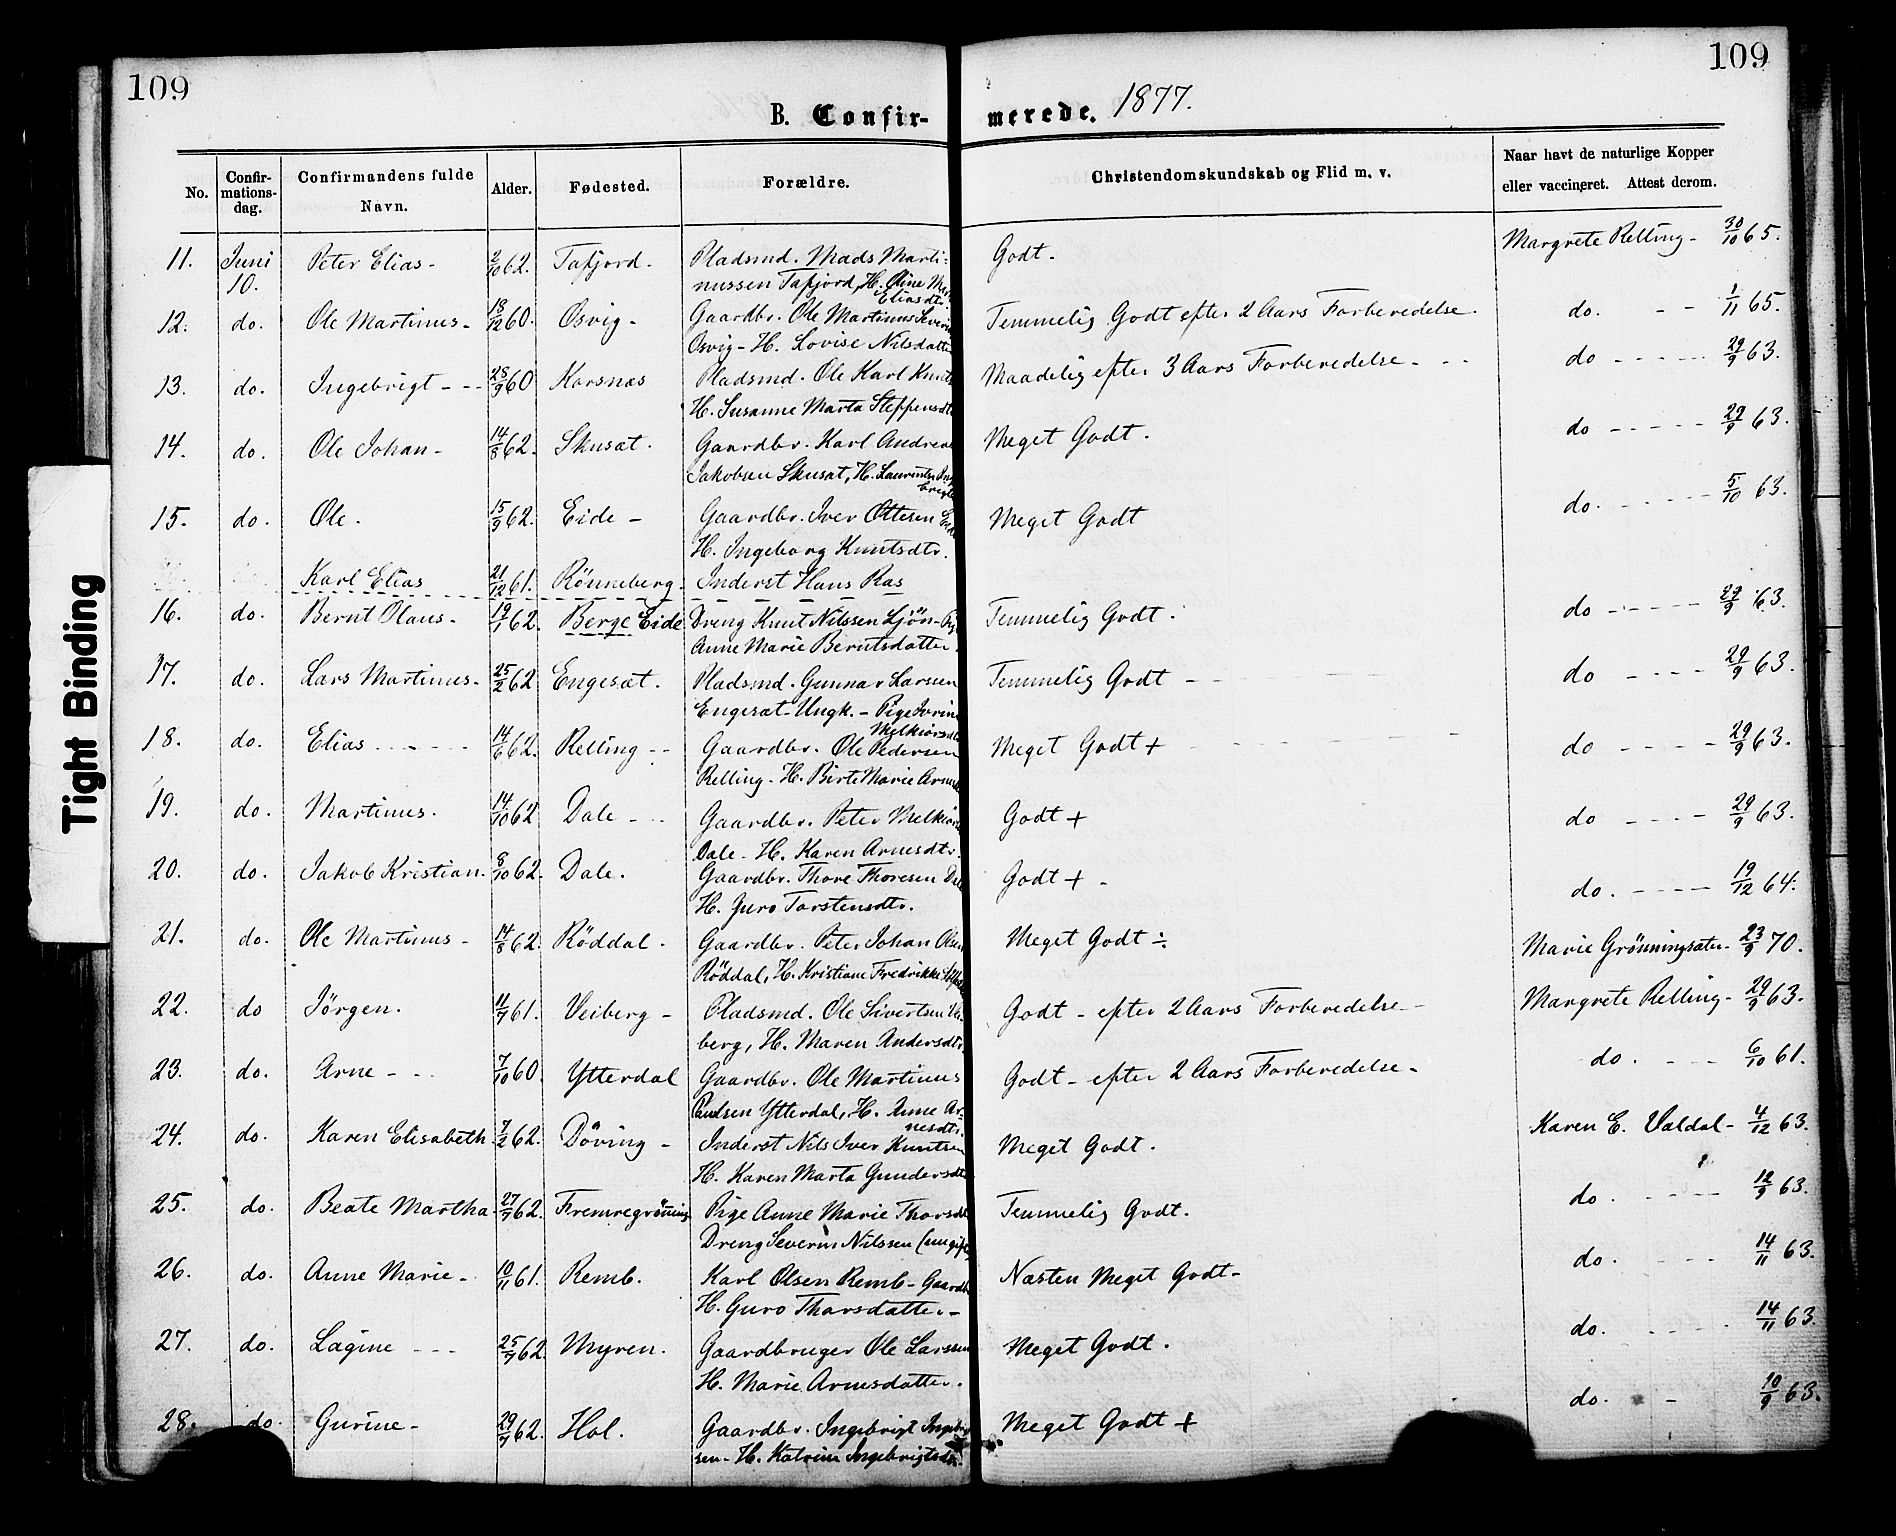 109
109
B. Confirmerede. 1877.
No. Confirmationsdag. Confirmandens fulde Navn. Alder. Fødested. Forældre. Christendomskundskab og Flid m. v. Naar havt de naturlige Kopper eller vaccineret. Attest derom.
11. Juni 10. Peter Elias - 2/10 62. Tafjord - Pladsmd. Mads Marti- Godt. Margrete Relling - 30/10 65.
nussen Tafjord, H. Oline
Eliasdtr
12. do. Ole Martinus - 18/12 60. Osvig - Gaardbr. Ole Martinus Temmelig Godt efter 2 Aars Forberedelse. do. 1/11 65.
Osvig - H. Lovise Nilsdatter
13. do. Ingebrigt - 28/9 60 Korsnæs Pladsmd. Ole Karl Maadelig efter 3 Aars Forberedelse - do 29/9 63.
H. Susanne Marta Steffensdtr
14. do. Ole Johan - 14/8 62. Skusæt. Gaardbr. Karl Andreas Meget Godt. do 29/9 63.
Jakobsen Skusæt, H.
15. do. Ole. 15/9 62. Eide - Gaardbr. Iver Ottesen Meget Godt do. 5/10 63.
H. Ingeborg Knutsdtr.
Karl Elias 21/12 61. Rönneberg. Inderst Hans Ras
16. do. Bernt Olaus - 19/1 62. Berge Eide Dreng Knut Nilssen Ljön - Temmelig Godt. do 29/9 63.
Anne Marie Berntsdatter.
17. do. Lars Martinus - 25/2 62 Engesæt. Pladsmd. Gunnar Larsen Temmelig Godt - do 29/9 63.
Engesæt - Ungk. - Pige
Melkiorsdtr
18. do. Elias 14/6 62. Relling - Gaardbr. Ole Pedersen Meget Godt + do 29/9 63.
Relling - H. Birte Marie
19. do. Martinus. 14/10 62 Dale - Gaardbr. Peter Godt + do 29/9 63.
Dale - H. Karen Arnesdtr.
20. do. Jakob Kristian. 8/10 62. Dale. Gaardbr. Thore Thoresen Godt + - do. 19/12 64.
H. Guro Torstensdtr.
21. do. Ole Martinus - 14/8 62. Röddal. Gaardbr. Peter Johan Meget Godt ÷ Marie Grönningsæter - 23/9 70.
Röddal, H. Kristiane Fredrikke
22. do Jörgen. 11/7 61. Veiberg - Pladsmd. Ole Sivertsen Vei- Godt - efter 2 Aars Forberedelse - Margrete Relling - 29/9 63.
berg, H. Maren Andersdtr.
23. do. Arne - 7/10 60. Ytterdal Gaardbr. Ole Martinus Godt - efter 2 Aars Forberedelse - do. 6/10 61.
Paulsen Ytterdal, H. Anne Ar-
nesdtr.
24. do. Karen Elisabeth 7/2 62. Döving - Inderst Nils Iver Knutsen Meget Godt. Karen E. Valdal - 4/12 63.
H. Karen Marta Gundersdtr
25. do. Beate Martha 27/7 62. Fremregröning Pige Anne Marie Temmelig Godt. do. 12/9 63.
Dreng Severin Nilssen
26. do. Anne Marie - 10/11 61. Remb. Karl Olsen Remb - Næsten Meget Godt - do. 14/11 63.
H. Guro Tharsdatter -
27. do. Lagine - 25/7 62. Myren. Gaardbruger Ole Larssen Meget Godt. do. 14/11 63.
H. Marie Arnesdatter.
28. do. Gurine - 29/7 62. Hol. Gaardbr. Ingebrigt Meget Godt + do. 10/9 63.
sen - H. Katrine Ingebrigtsdtr.
Tight Binding